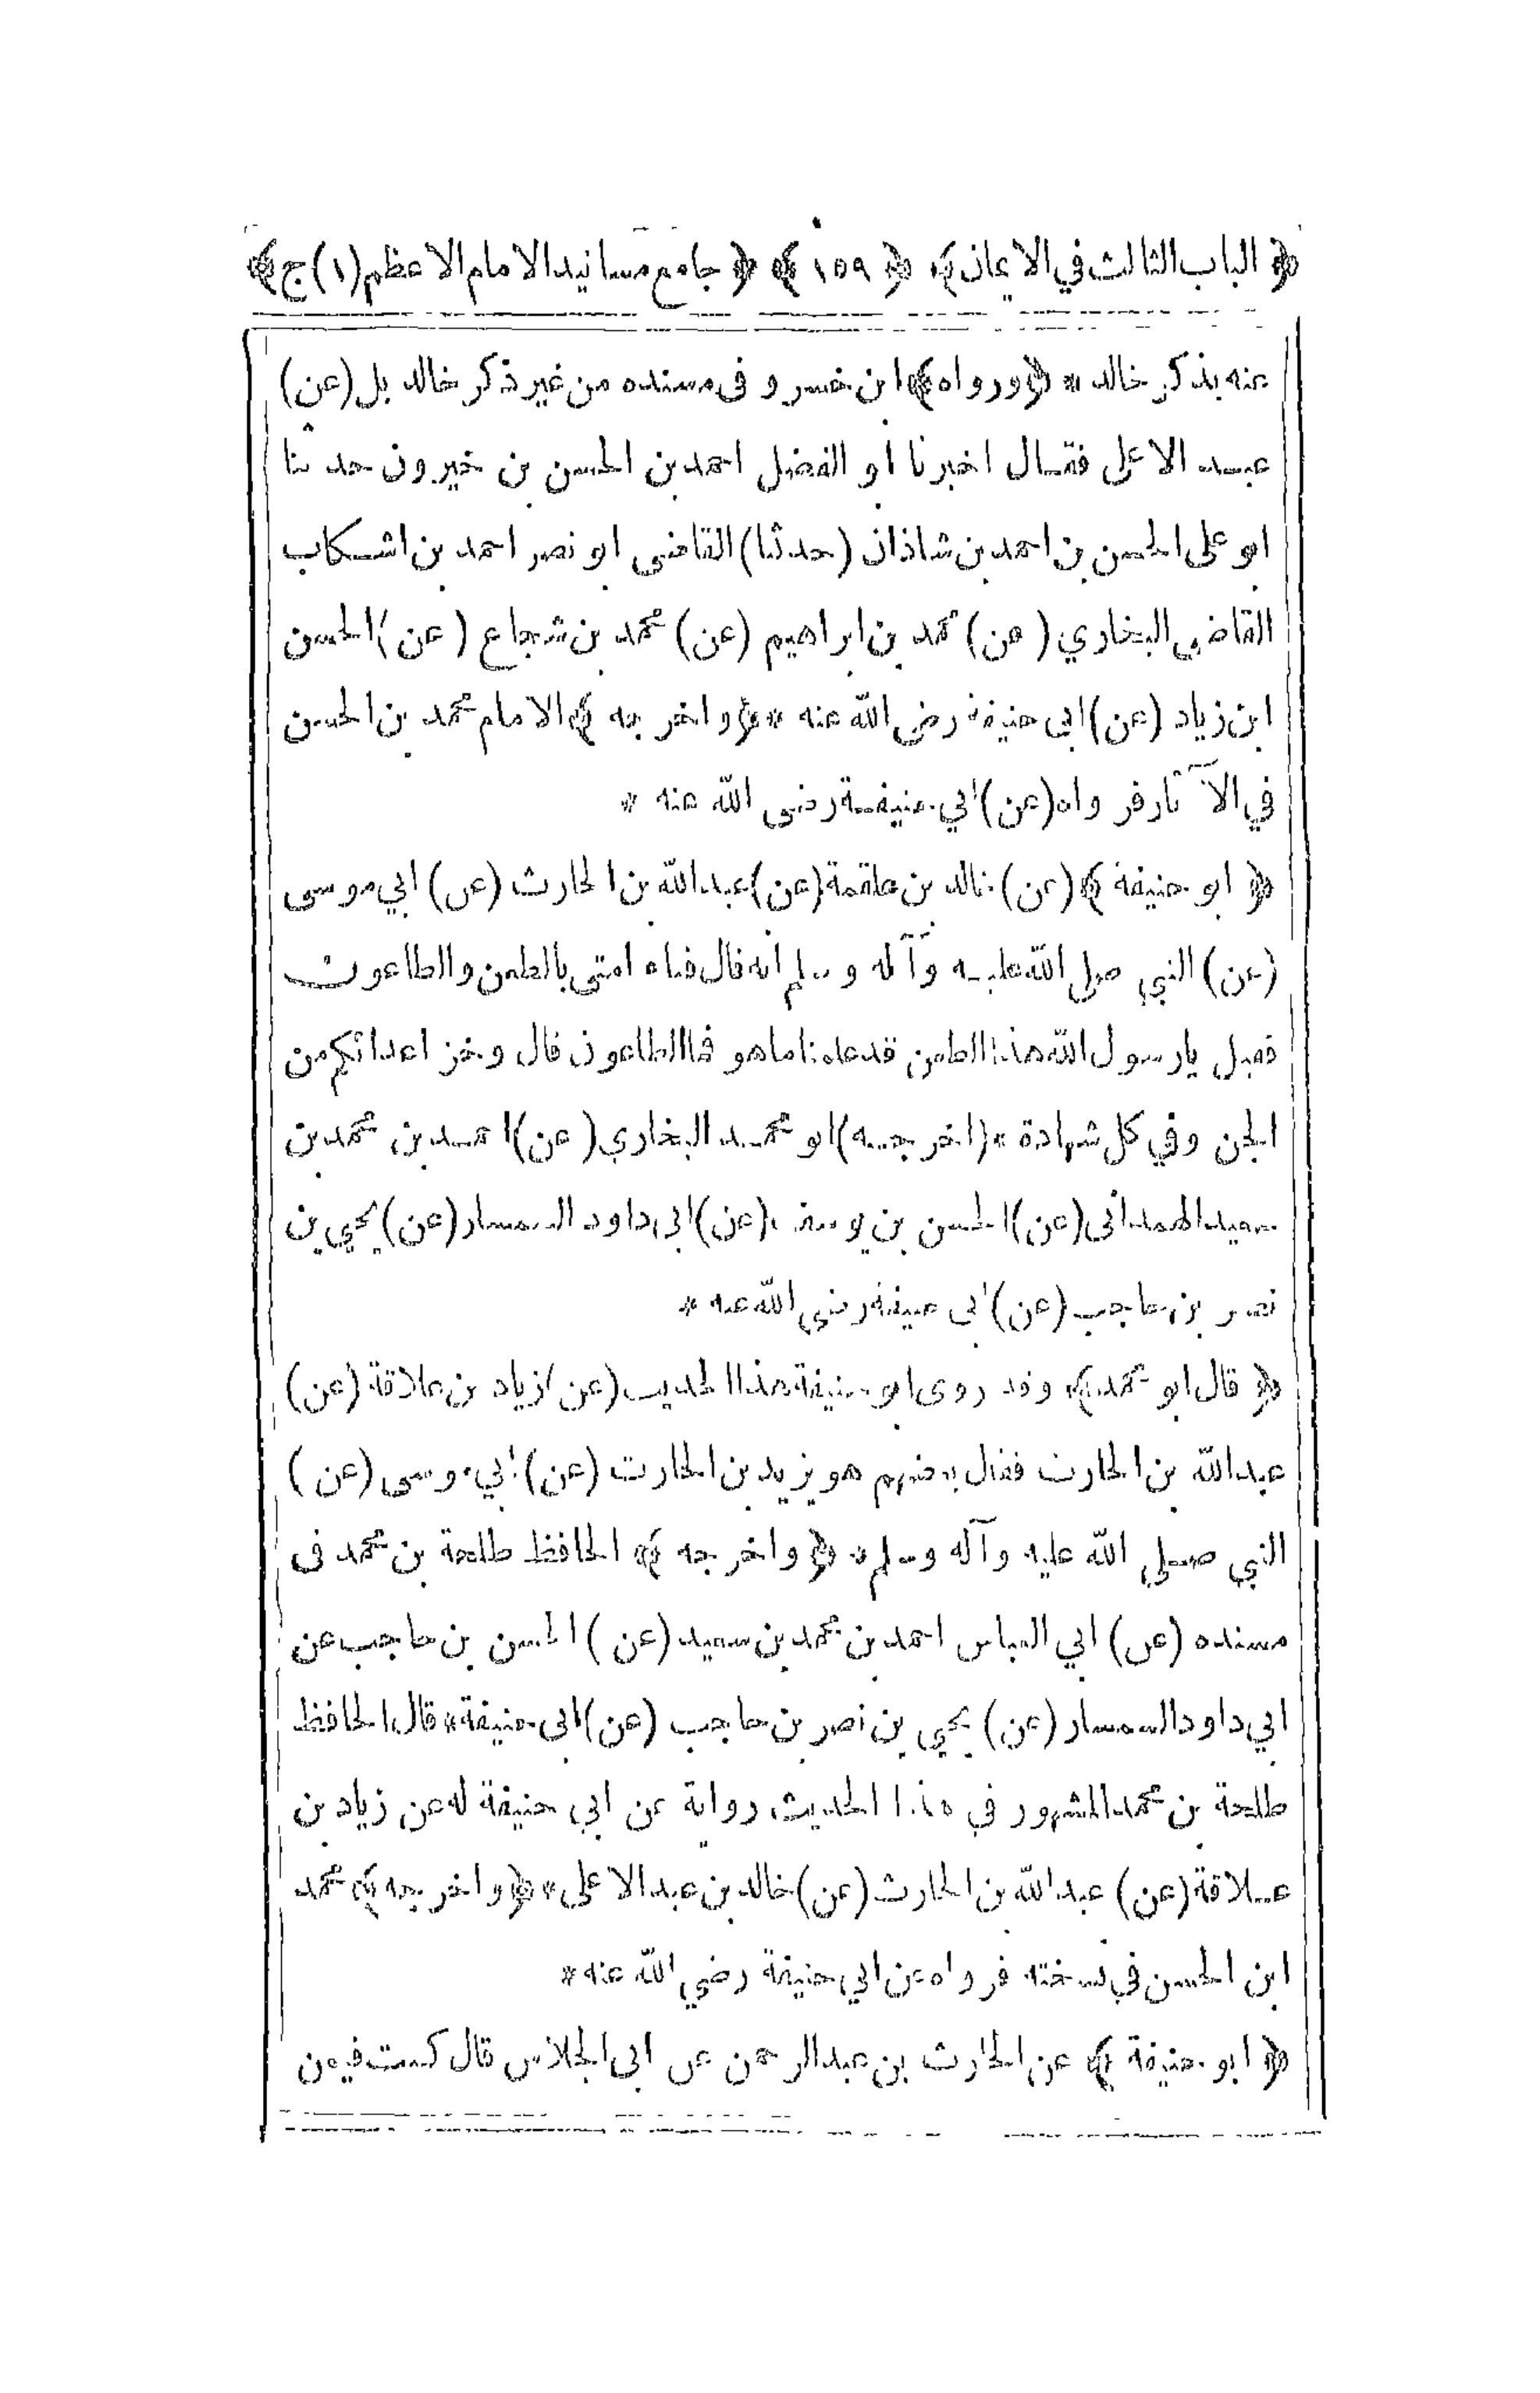 ﴿ الباب الثالث في الايمان ﴾ ﴿ ١٥٩ ﴾ ﴿ جامع مسانيد الامام الاعظم (١) ج ﴾
عنه بذكر خالد * ﴿ ورواه ﴾ ابن خسرو فى مسنده من غير ذكر خالد بل (عن)
عبد الاعلى فقال اخبرنا ابو الفضل احمد بن الحسن بن خيرون حدثنا
ابو على الحسن بن احمد بن شاذان (حدثنا) القاضى ابو نصر احمد بن اشكاب
القاضي البخاري (عن) محمد بن ابراهيم (عن) محمد بن شجاع (عن) الحسن
ابن زياد (عن) ابى حنيفة رضي الله عنه * ﴿ واخرجه ﴾ الامام محمد بن الحسن
في الآثار فرواه (عن) ابي حنيفة رضى الله عنه *
﴿ ابو حنيفة ﴾ (عن) خالد بن علقمة (عن) عبد الله بن الحارث (عن) ابي موسى
(عن) النبي صلى الله عليه وآله وسلم انه قال فناء امتى بالطعن والطاعون
فقيل يارسول الله هذا الطعن قد علمنا ما هو فما الطاعون قال وخز اعدائكم من
الجن وفي كل شهادة * (اخرجه) ابو محمد البخاري (عن) احمد بن محمد بن
سعيد الهمدانى (عن) الحسن بن يوسف (عن) ابى داود السمسار (عن) يحيي بن
نصر بن حاجب (عن) ابى حنيفة رضي الله عنه *
﴿ قال ابو محمد ﴾ وقد روى ابو حنيفة هذا الحديث (عن) زياد بن علاقة (عن)
عبد الله بن الحارث فقال بعضهم هو يزيد بن الحارث (عن) ابي موسى (عن)
النبي صلى الله عليه وآله وسلم * ﴿ واخرجه ﴾ الحافظ طلحة بن محمد فى
مسنده (عن) ابي العباس احمد بن محمد بن سعيد (عن) الحسن بن حاجب عن
ابي داود السمسار (عن) يحيي بن نصر بن حاجب (عن) ابى حنيفة * قال الحافظ
طلحة بن محمد المشهور في هذا الحديث رواية عن ابي حنيفة له عن زياد بن
علاقة (عن) عبد الله بن الحارث (عن) خالد بن عبد الاعلى * ﴿ واخرجه ﴾ محمد
ابن الحسن في نسخته فرواه عن ابي حنيفة رضي الله عنه *
﴿ ابو حنيفة ﴾ عن الحارث بن عبد الرحمن عن ابى الجلاس قال كنت فيمن